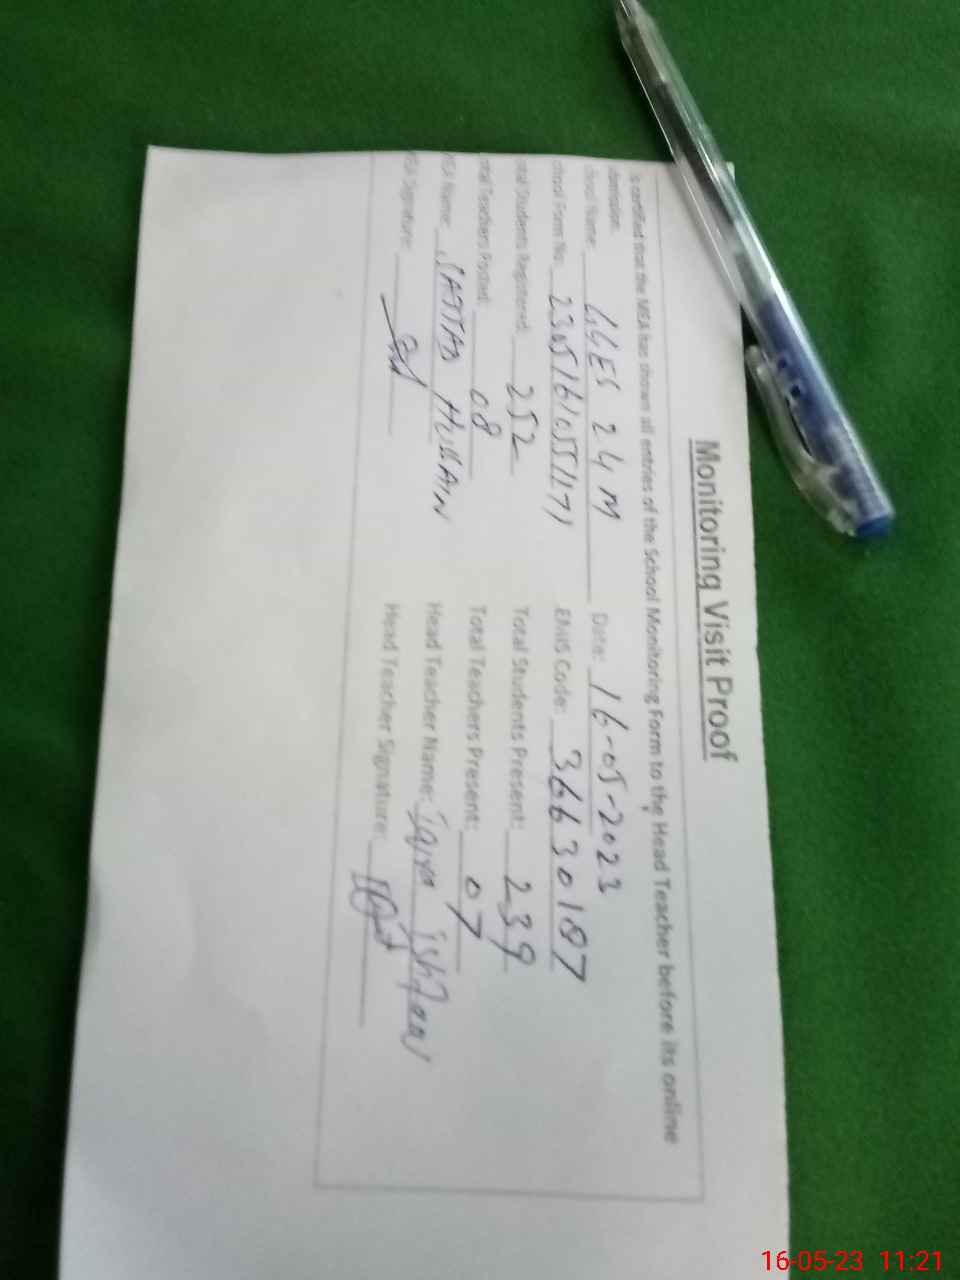 Monitoring Visit Proof
is certified that the MEA has shown all entries of the School Monitoring Form to the Head Teacher before its online
School Name: GGES 24 M Date: 16-05-2023
School Form No. EMIS Code: 36630187
Total Students Registered: 252 Total Students Present: 239
Total Teachers Posted: 08 Total Teachers Present: 07
MEA Name: SAJJAD HUSSAIN Head Teacher Name: iqra
MEA Signature: Head Teacher Signature:
16-05-23 11:21